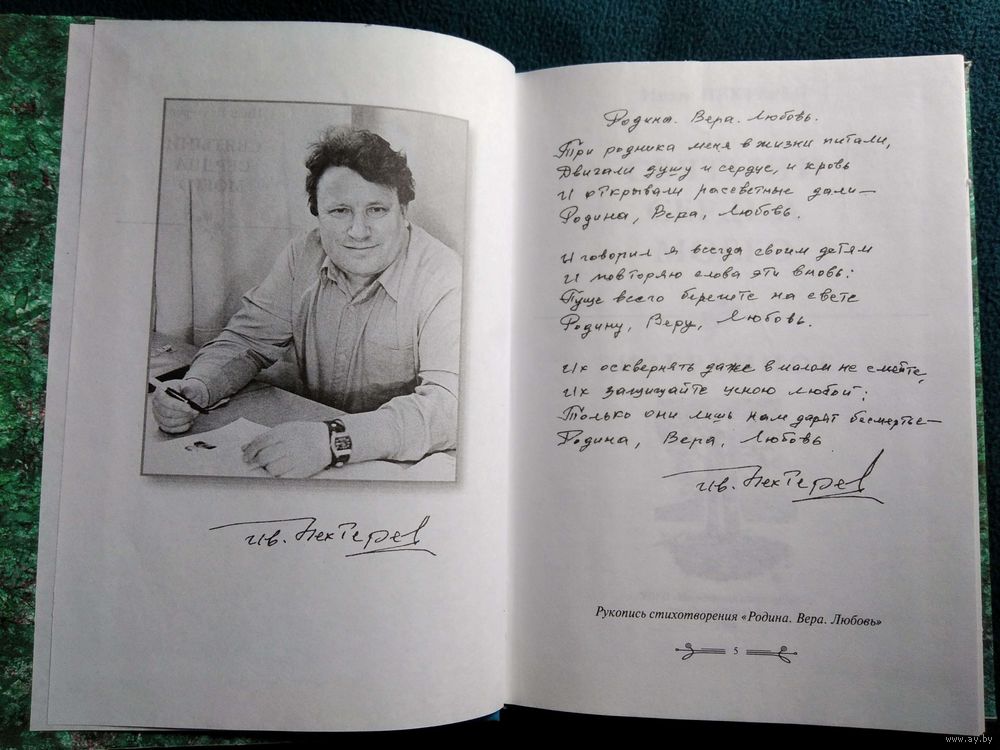 Ив. Пехтерев
Родина. Вера. Любовь.
Три родника меня в жизни питали,
Двигали душу и сердце, и кровь
И открывали рассветные дали—
Родина, Вера, Любовь.
И говорил я всегда своим детям
И повторяю слова эти вновь:
Пуще всего берегите на свете
Родину, Веру, Любовь.
Их осквернять даже в малом не смейте,
Их защищайте ценою любой;
Только они лишь нам дарят бессмертье—
Родина, Вера, Любовь
Ив. Пехтерев
Рукопись стихотворения «Родина. Вера. Любовь»
5
www.ay.by